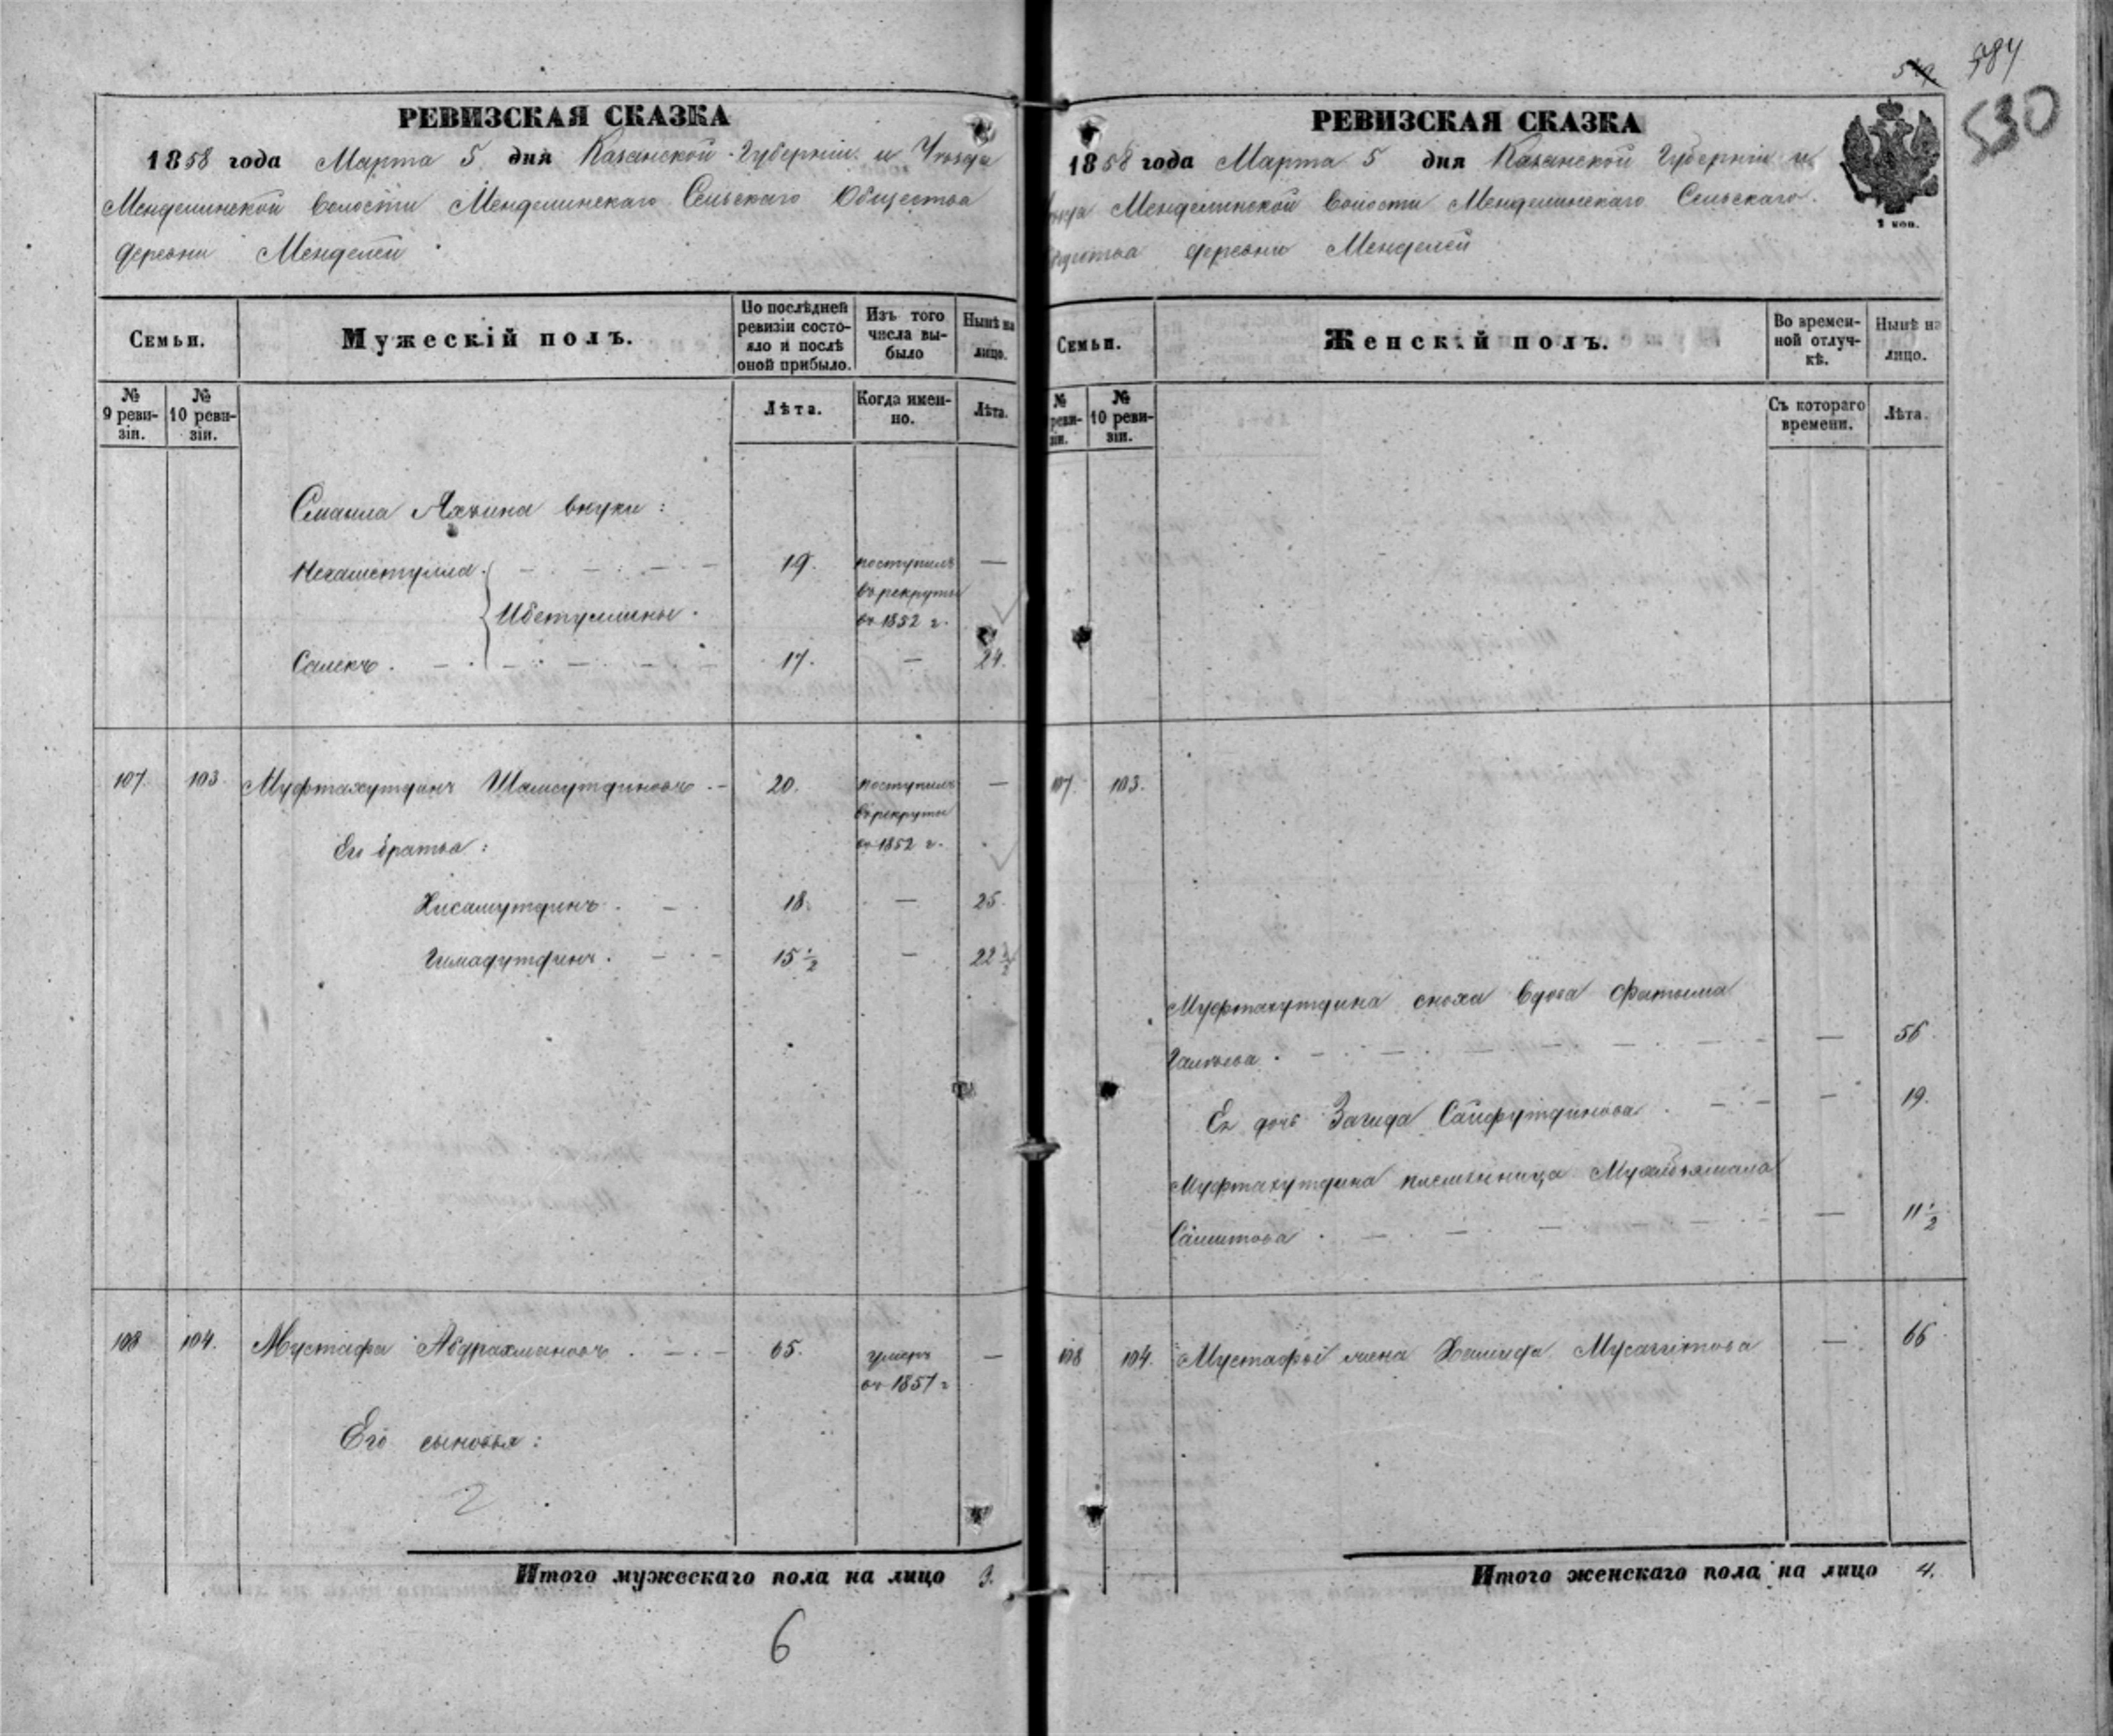 РЕВИЗСКАЯ СКАЗКА
1858 года Марта 5 дня Казанской Губерніи и Уѣзда
Менделинской волости Менделинскаго Сельскаго Общества
деревни Менделей
Семьи.
Мужескій полъ.
По послѣдней ревизіи состо-
яло и послѣ оной прибыло.
Изъ того числа вы-
было
Нынѣ на лицо.
№ 9 реви-
зіи.
№ 10 реви-
зіи.
Лѣта.
Когда имен-
но.
Лѣта.
внуки:
19. поступилъ —
въ рекруты
въ 1852 г.
Салихъ. 17. — 24.
107. 103. Муфтахутдинъ Шамсутдиновъ. 20. поступилъ —
въ рекруты
Его братья: въ 1852 г.
Хисамутдинъ. 18. — 25.
Гимадутдинъ. 15 ½ — 22 ½
108 104. Мустафа Абдрахмановъ. 65. умеръ —
въ 1851 г
Его сыновья:
2
Итого мужескаго пола на лицо 3.
6
584
530
РЕВИЗСКАЯ СКАЗКА
1858 года Марта 5 дня Казанской Губерніи и
Менделинской волости Менделинскаго Сельскаго
деревни Менделей
1 коп.
Семьи.
Женскій полъ.
Во времен-
ной отлуч-
кѣ.
Нынѣ на
лицо.
№
реви-
зіи.
№
10 реви-
зіи.
Съ котораго
времени.
Лѣта.
107. 103.
Муфтахутдина сноха вдова Фатыма
— 56.
Ея дочь Загида Сайфутдинова. — 19.
Муфтахутдина племянница
— 11 ½
108 104. Мустафы жена Халида — 66.
Итого женскаго пола на лицо 4.